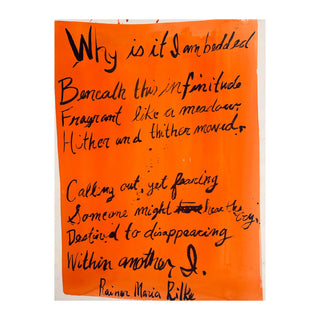 Why is it I am bedded
Beneath this infinitude
Fragrant like a meadow
Hither and thither moved,
Calling out, yet fearing
Someone might hear the cry,
Destined to disappearing
Within another I.
Rainer Maria Rilke